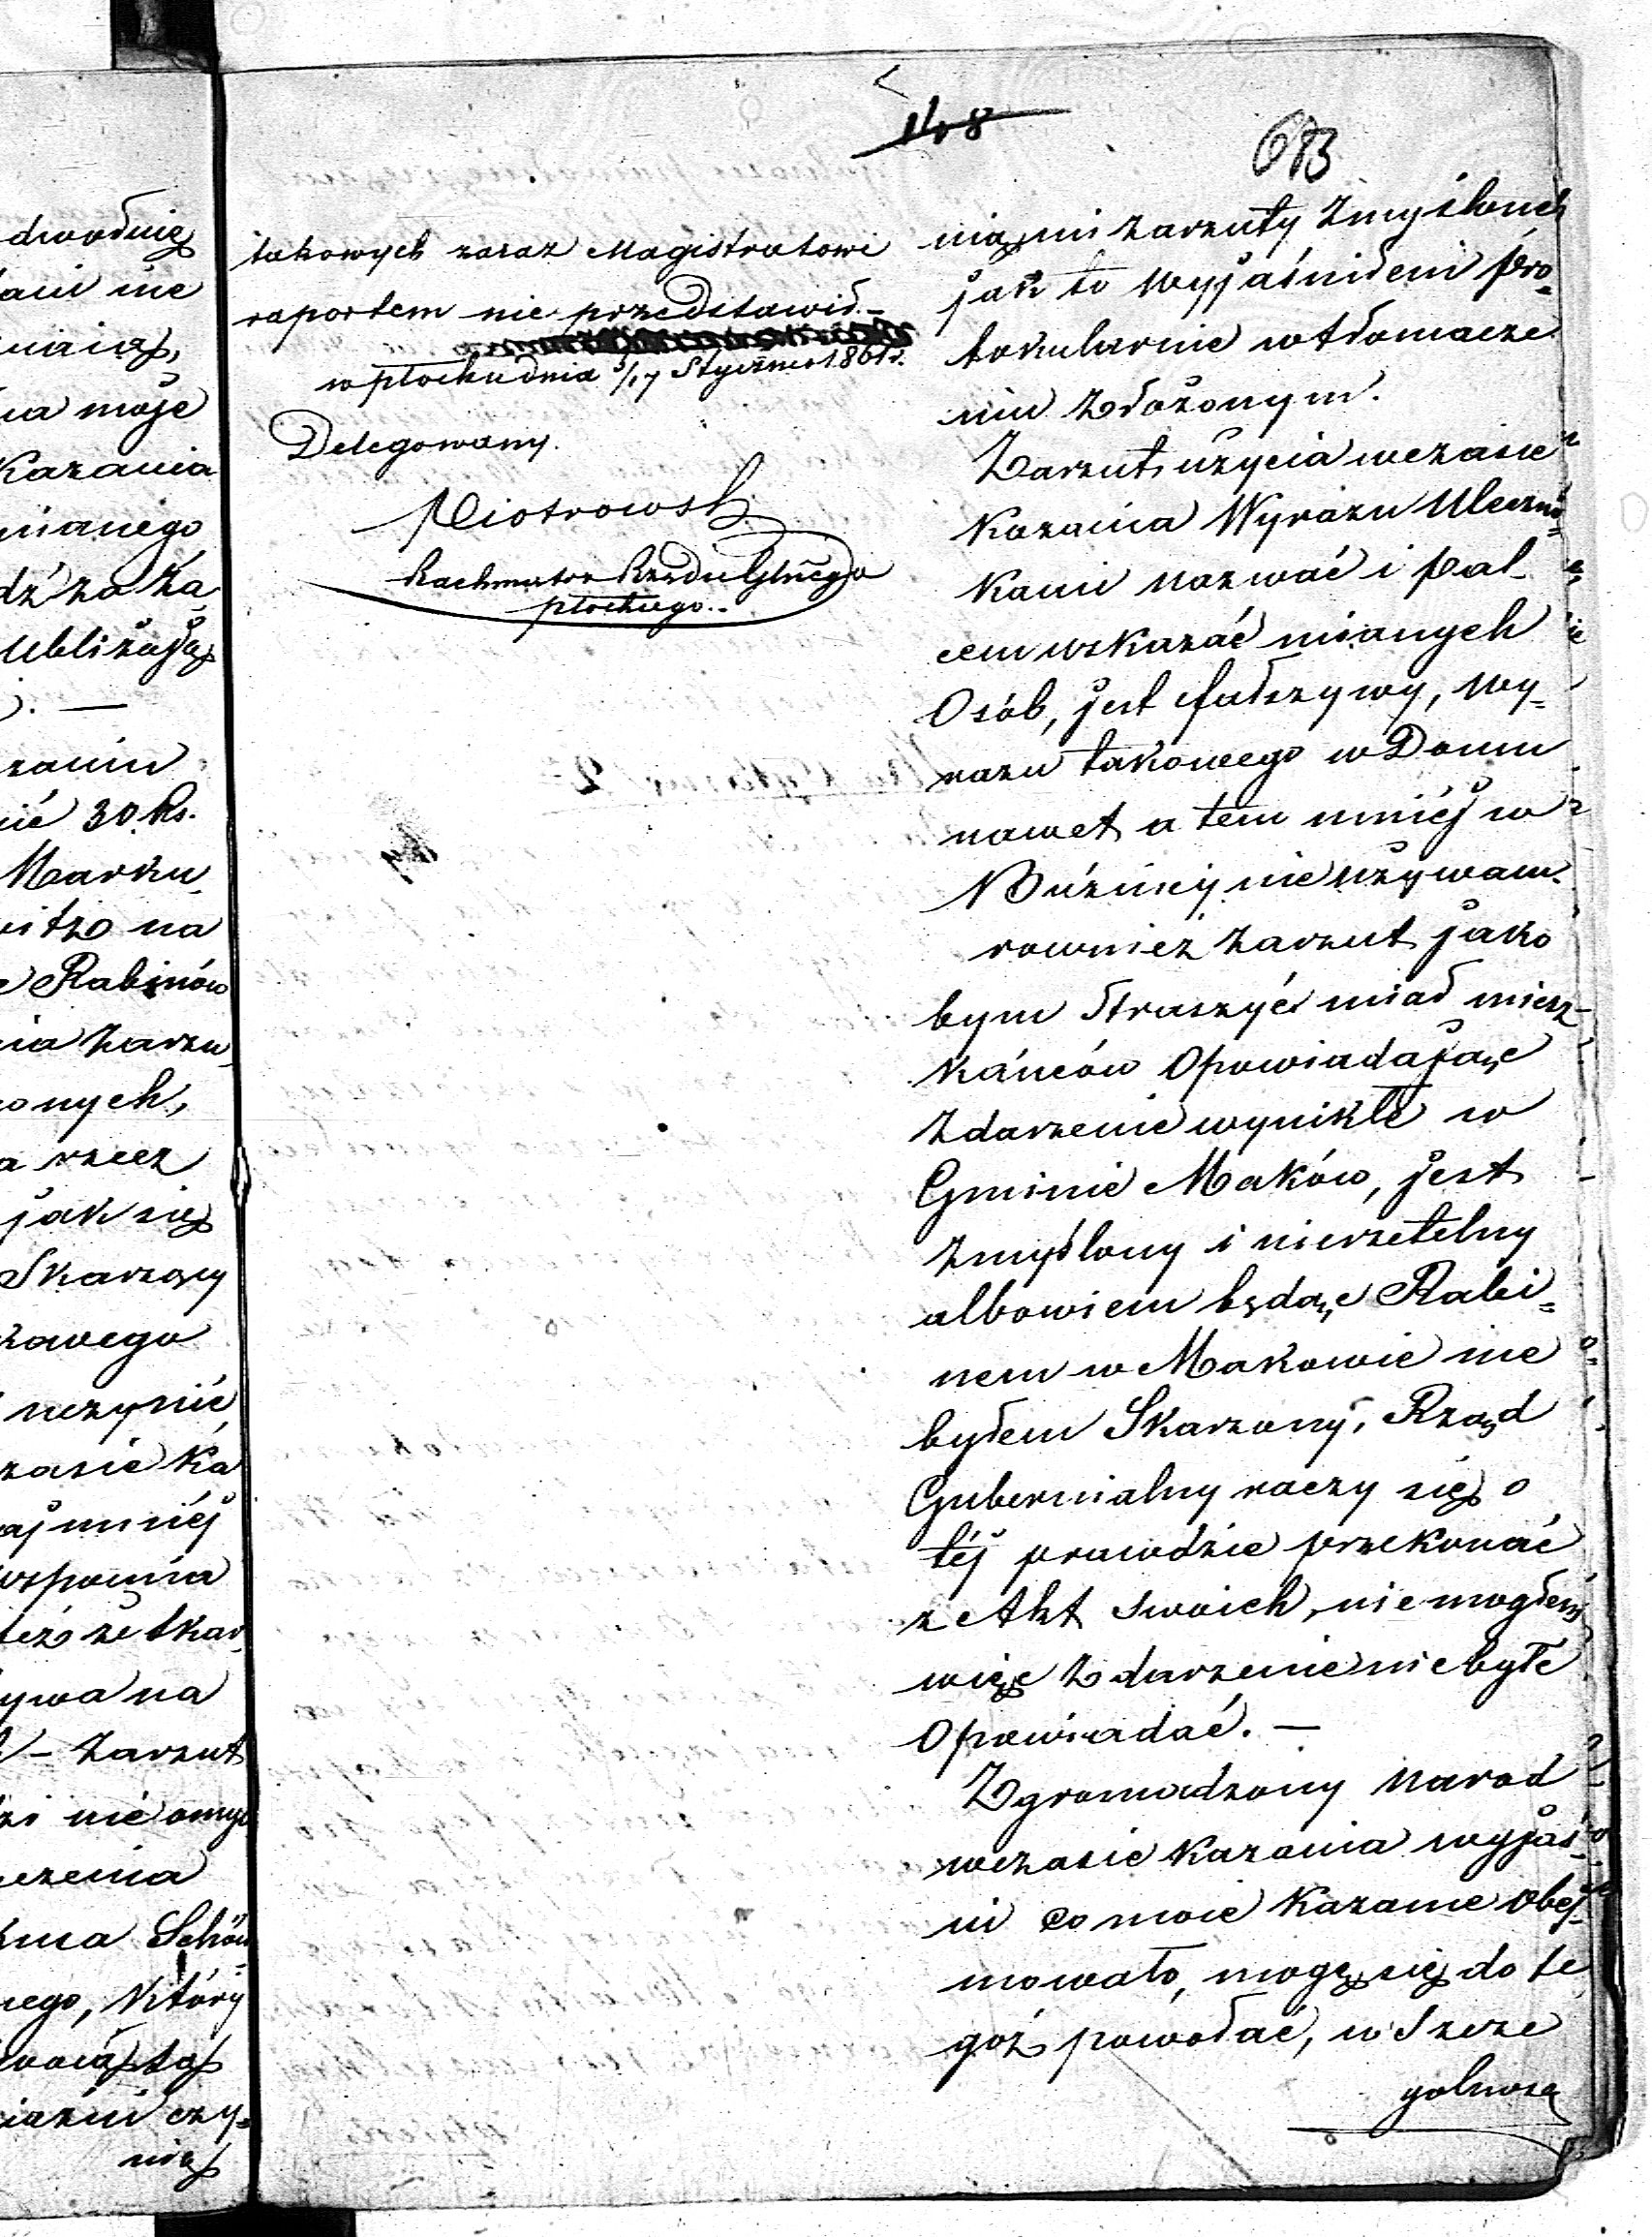 dwodnię
nie
maią,
moje
Kazania
mianego
dź za Za
Ubliżają
zaniu
30 Rs.
Marku
na
Rabinów
nia Zarzu
onych,
a rzecz
jak się
Skarzący
kowego
uczynić
zasie Ka
aj mniéj
wspomnia
też że Skar
ywa na
– Zarzut
nie omy
czenia
Schön
nego, Który
czy=
nią
148
683
takowych zaraz Magistratowi
raportem nie przedstawił.–
w Płocku dnia 5/17 Stycznia 1861 r.
Delegowany.
Piotrowski
Rachmistrz Rządu Glnego
Płockiego.–
nią mi zarzuty Zmyślone
jak to Wyjaśniłem pro=
tokularnie w tłomacze
niu Złożonym.
Zarzut użycia w czasie
Kazania Wyrazu Uleczni=
kami nazwać i pal
cem wskazać mianych
Osób, jest fałszywy, Wy=
razu takowego w Domu
nawet a tem mniéj w
Bóżnicy nie używam.
rownież Zarzut jako
bym Straszyć miał miesz-
kańców Opowiadając
Zdarzenie wynikłe w
Gminie Maków, jest
Zmyślony i nierzetelny
albowiem będąc Rabi=
nem w Makowie nie
byłem Skarzony, Rząd
Gubernialny raczy się o
téj prawdzie przekonać
z Akt Swoich, nie mogłem
więc Zdarzenie niebyłe
Opowiadać. –
Zgromadzony Narod
w czasie Kazania wyjaś
ni co moie Kazanie obej
mowało, mogę się do te
goż powołać, w Szcze
golnosc